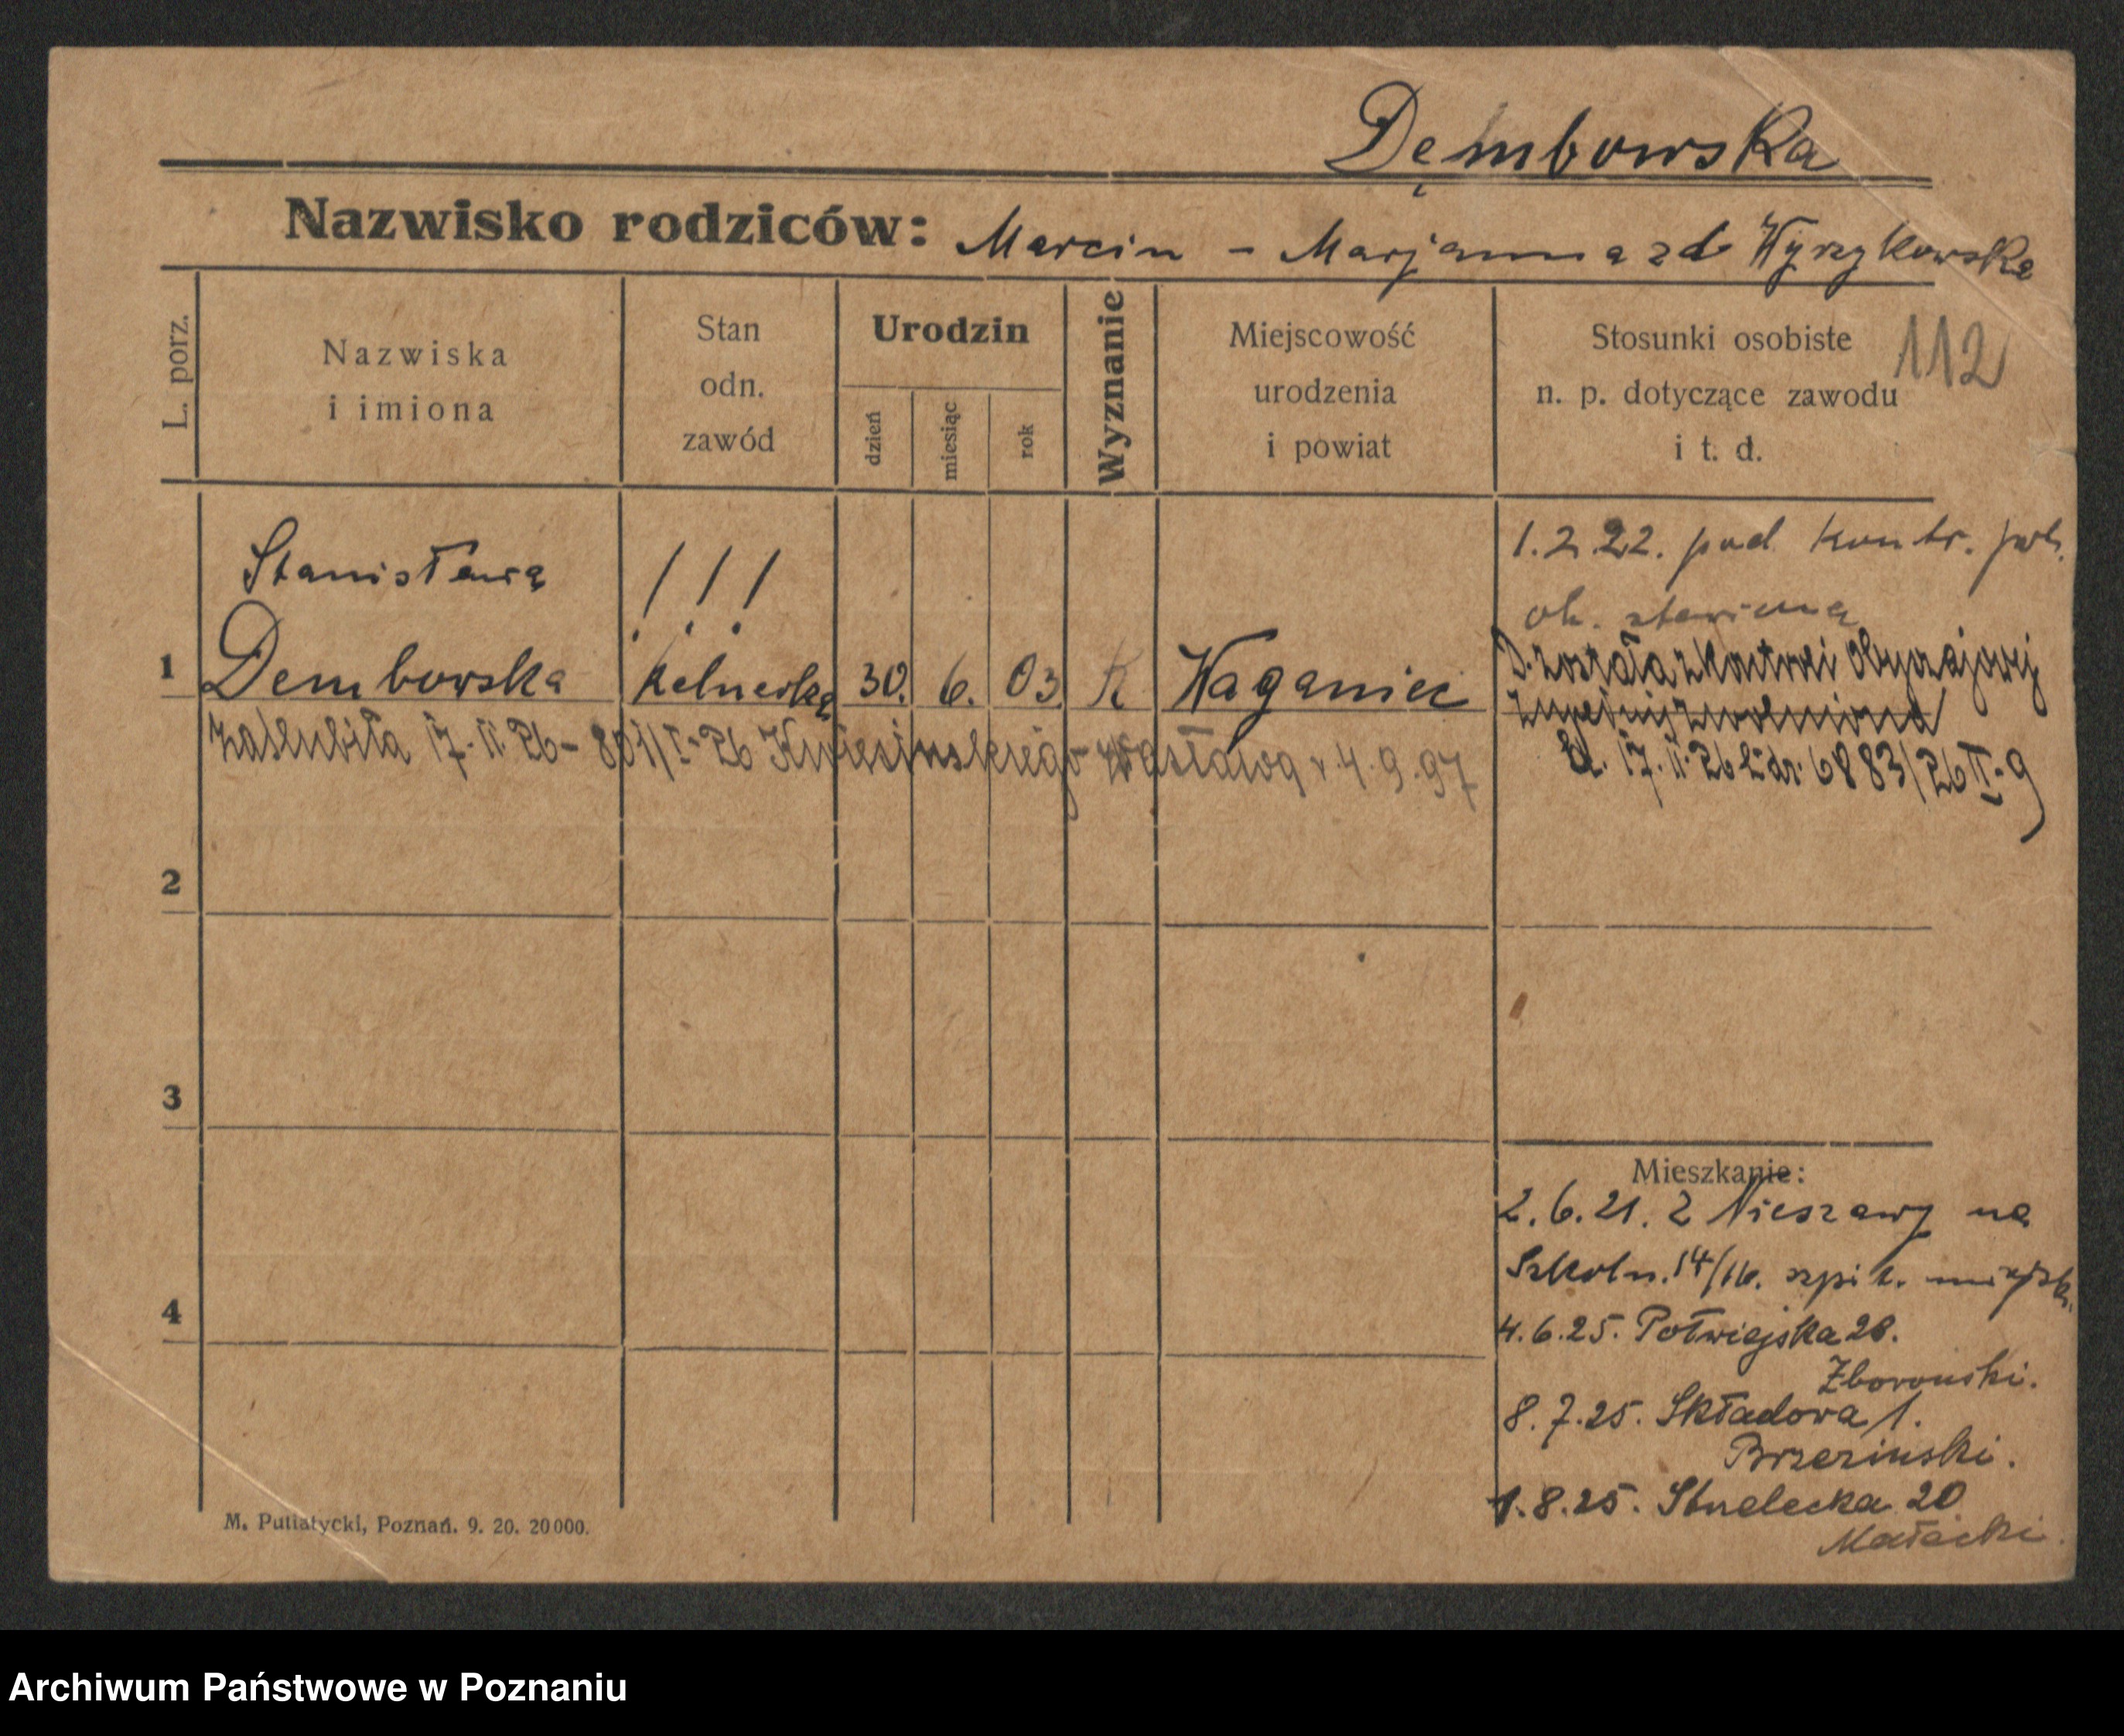 Dembowska
Nazwisko rodziców: Marcin - Marjanna zd Wyrzykowska
L. porz.
Nazwiska
i imiona
Stan
odn.
zawód
Urodzin
dzień
miesiąc
rok
Wyznanie
Miejscowość
urodzenia
i powiat
Stosunki osobiste
n. p. dotyczące zawodu
i t. d.
112
Stanisława
! ! !
1 Dembowska kelnerka 30. 6. 03. K Waganiec
zaślubiła 17.II.26 - 801/I-26 Kwiesinskiego Wacława v. 4.9.97
1.2.22. pod kontr. pol.
ob. stawiona
D. została z kontroli obyczajowej
zupełnie zwolniona
17.II.26 L.dz. 6883/26 II.9
2
3
4
Mieszkanie:
2.6.21. z Nieszawy na
Szkoln. 14/16. szpit. miejsk.
4.6.25. Półwiejska 28.
Zborowski.
8.7.25. Składowa 1.
Brzezinski.
1.8.25. Strzelecka 20
Małecki.
M. Putiatycki, Poznań. 9. 20. 20000.
Archiwum Państwowe w Poznaniu